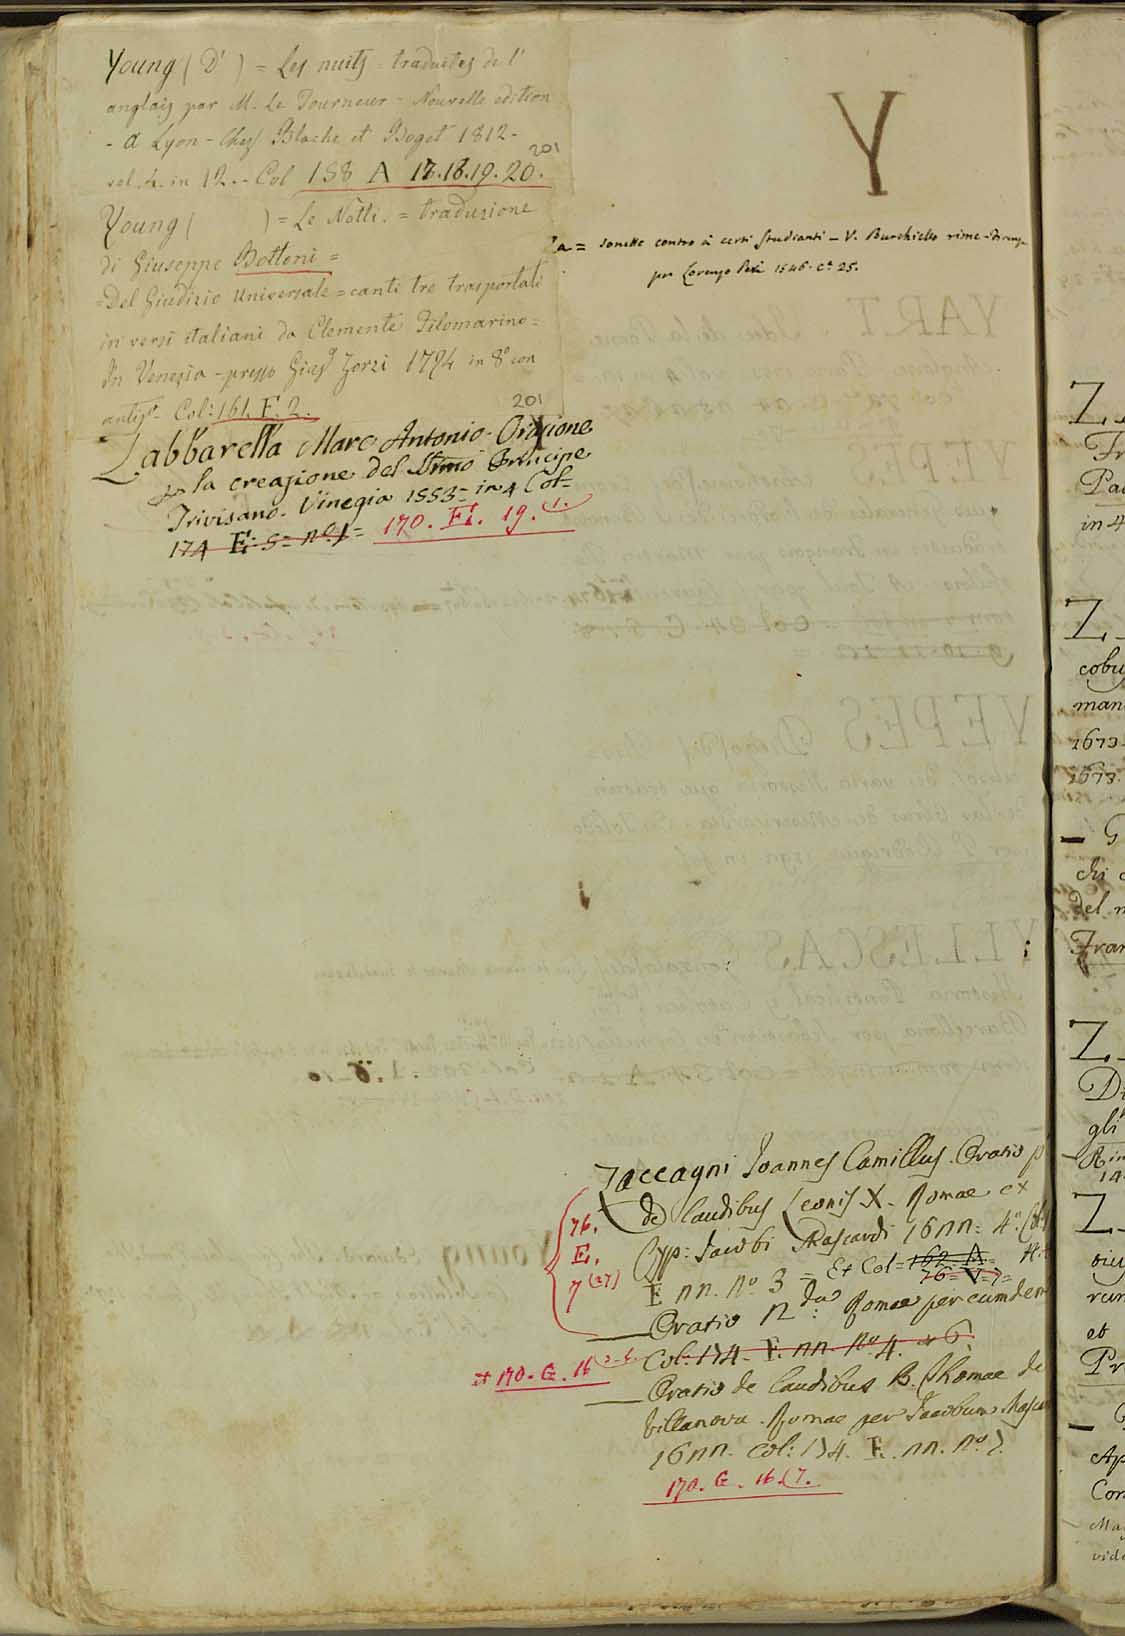 Young (D' ) = Les nuits = traduites de l'
anglais par M. Le Tourneur = Nouvelle edition
- a Lyon - Chez Blache et Boget 1812 -
vol. 4. in 12. - Col 158 A 17.18.19.20.
201
Young ( ) = Le Notti. = traduzione
di Giuseppe Bottoni =
= Del Giudizio Universale = canti tre trasportati
in versi italiani da Clemente Filomarino =
In Venezia - presso Zorzi 1794 in 8° con
antip. Col: 161. F. 2.
201
Zabbarella Marc Antonio - Orazione
la creazione del Principe
Trivisano. Vinegia 1553 = in 4 Col =
174 F. 5 = n° 1 = 170. F. 19. (1.
Y
Za = Sonetto contro à certi Studianti - V. Burchiello rime - Firenze
per Lorenzo Peri 1546. c. 25.
Zaccagni Joannes Camillus. Oratio p
de laudibus Leonis X. Romae ex
Typ: Jacobi Mascardi 16nn = 4° Col
E nn. n° 3 = Et Col = 162. A =
76 = V = 7 =
Oratio n da: Romae per eumdem
Col: 174. E. nn. n° 4. = 6.
Oratio de laudibus B. Thomae de
Villanova. Romae per Jacobum Masca
16nn. Col: 174. E. nn. n° 7.
170. G. 16 (7.
76.
E.
7 (27)
et 170. G. 16
Z
Fr
Pa
in 4
Z
cobu
man
1673
1673
G
chi
del
Fran
Z
Di
gli
Rim
Z
rum
et
Pr
Ap
Con
vid